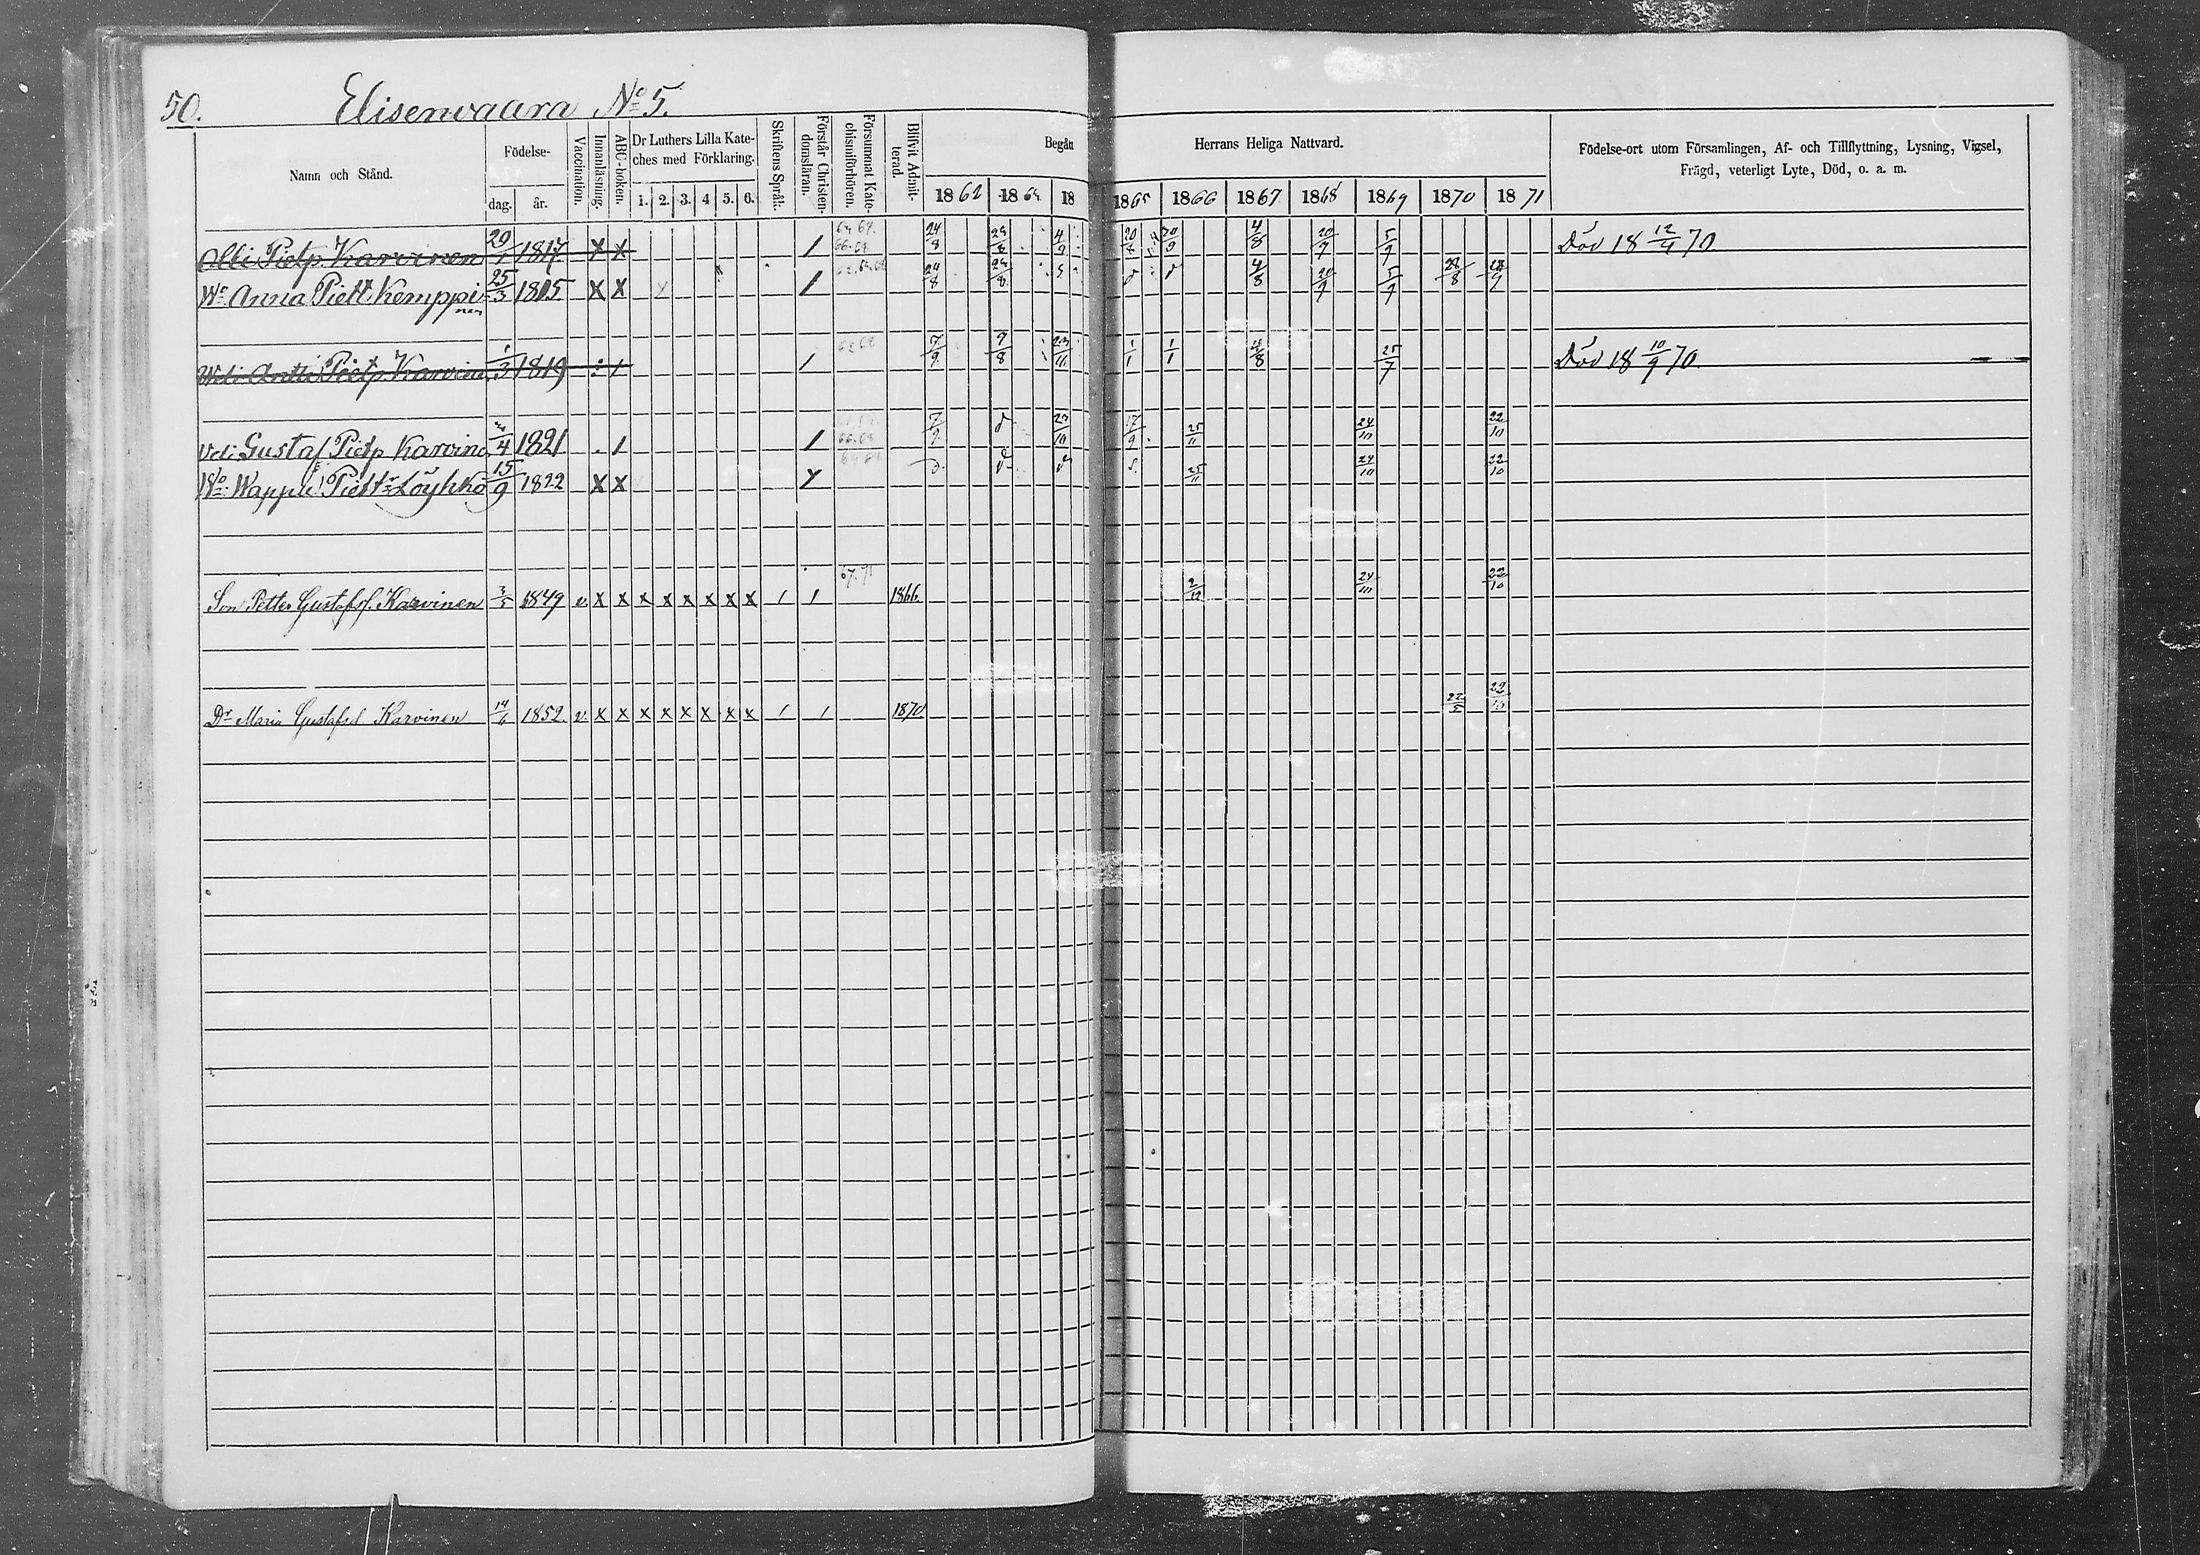 50. Elisenvaara No 5.
Namn och Stånd.
Födelse-
dag. år.
Vaccination.
Innanläsning.
ABC-boken.
Dr Luthers Lilla Kate-
ches med Förklaring.
1. 2. 3. 4 5. 6.
Skriftens Språk.
Förstår Christen-
domsläran.
Försummat Kate-
chismiförhören.
Blifvit Admit-
terad.
Begått Herrans Heliga Nattvard.
1862 1864 18 1865 1866 1867 1868 1869 1870 1871
Födelse-ort utom Församlingen, Af- och Tillflyttning, Lysning, Vigsel,
Frägd, veterligt Lyte, Död, o. a. m.
Olli Pietp. Karvinen 1817 x x / 24/8 24/8 4/9 20/8 20/9 4/8 20/9 5/9 Död 18 12/4 70
Wo Anna Piett Kemppinen 25/3 1815 x x / 24/8 24/8 4/8 20/9 5/9 28/8
Veli Antti Pietp. Karvine 1/3 1819 / / 7/9 9/8 23/11 1/1 1/1 4/8 25/7 Död 18 10/9 70.
Veli Gustaf Pietp Karvine 1821 / / 7/9 23/10 17/9 25/11 24/10 22/10
Wo Wappu Piett Löyhkö 15/9 1822 x x 25/11 24/10 22/10
67. 71
Son Petter Gustafsf. Karvinen 3/5 1849 v. x x x x x x x x / / 1866. 2/12 24/10 22/10
Dr Maria Gustafsd Karvinen 14/6 1852. v. x x x x x x x x / / 1870 22/5 22/10